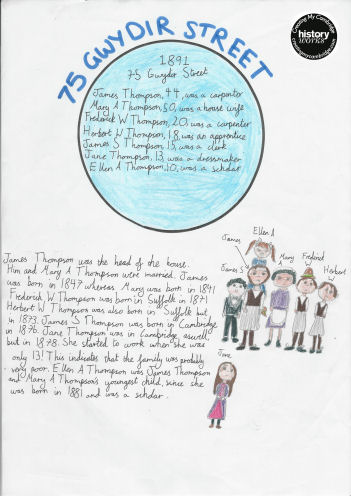 75 GWYDIR STREET
Creating My Cambridge
history
WORKS
creatingmycambridge.com
1891
75 Gwyder Street
James Thompson, 44, was a carpenter
Mary A Thompson, 50, was a house wife
Frederick W Thompson, 20, was a carpenter
Herbert W Thompson, 18, was an apprentice
James S Thompson, 15, was a clerk
Jane Thompson, 13, was a dressmaker
Ellen A Thompson, 10, was a scholar
James Thompson was the head of the house.
Him and Mary A Thompson were married. James
was born in 1847 whereas Mary was born in 1841
Frederick W Thompson was born in Suffolk in 1871
Herbert W Thompson was also born in Suffolk but
in 1873. James S Thompson was born in Cambridge
in 1876. Jane Thompson was in Cambridge aswell
but in 1878. She started to work when she was
only 13! This indicates that the family was probably
very poor. Ellen A Thompson was James Thompson
and Mary A Thompson's youngest child, since she
was born in 1881 and was a scholar.
Ellen A
James
James S
Mary
Frederick
W
Herbert
W
Jane